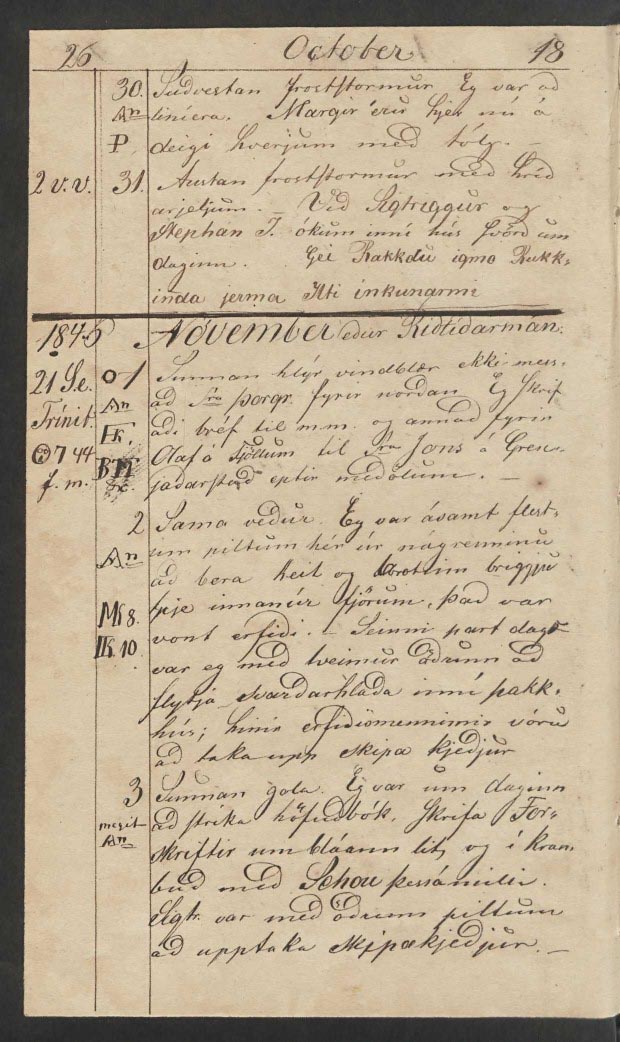 26 October 18
30. Sudvestan froststormur Eg var ad
An liniera. Margir eru hjer nú á
P. deigi hverjum med tólg. –
2 v. v. 31. Austan froststormur med hríd
arjeljum. – Vid Sigtriggur og
Stephan T. ókum inní hús svörd um
daginn. Gei Rakkdu igmo Rukk=
inda jerma Itti inkunarmi
1845 November edur Ridtídarmán:
21 Se. 1 Sunnan hlýr vindblær ekki mess=
Trínit. An ad Sra þorgr. fyrir nordan Eg skrif
adi bréf til m.m. og annad fyrir
7 44 Olaf á Fjöllum til Sra Jons á Gren=
f. m. jadarstad eptir medölum. –
2 Sama vedur. Eg var ásamt flest=
An um piltum hér úr nágrenninu
ad bera keit og briggju
M 8. innanúr fjörum, þad var
10. vont erfidi. – Seinni part dags
var eg med tveimur ödrum ad
flytja svardarhlada inní pakk=
hús; hinir erfidismennirnir vóru
ad taka upp skipa kjedjur
3 Sunnan gola. Eg var um daginn
megit ad strika höfudbók, skrifa For=
An skriftir um bláann lit, og í kram
bud med Schou þessámilli.
Sigtr. var med ödrum piltum
ad upptaka skipakjedjur. –